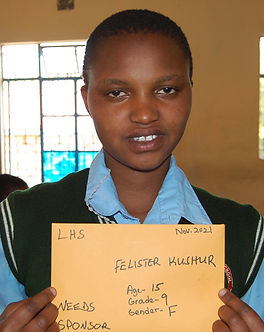 LHS Nov. 2021
FELISTER KUSHUR
Age- 15
Grade- 9
Gender- F
NEEDS
SPONSOR